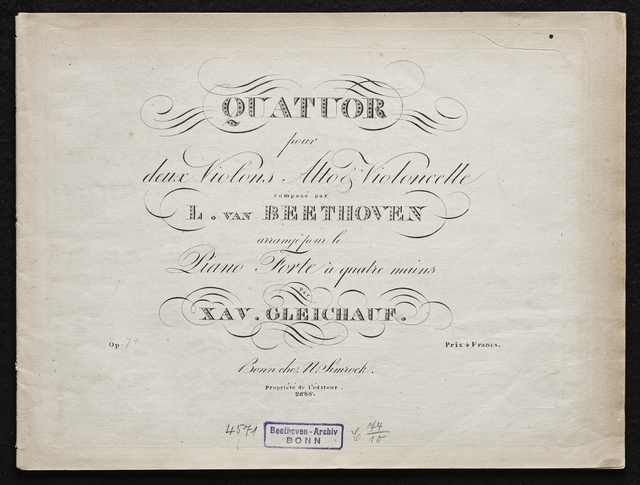 QUATUOR
pour
deux Violons Alto & Violoncelle
composé par
L. VAN BEETHOVEN
arrangé pour le
Piano Forte à quatre mains
Par
XAV. GLEICHAUF.
Op. 74
Prix 4 Francs.
Bonn chez N. Simrock.
Propriété de l'éditeur.
2686.
4571
Beethoven-Archiv
BONN
C 74/10